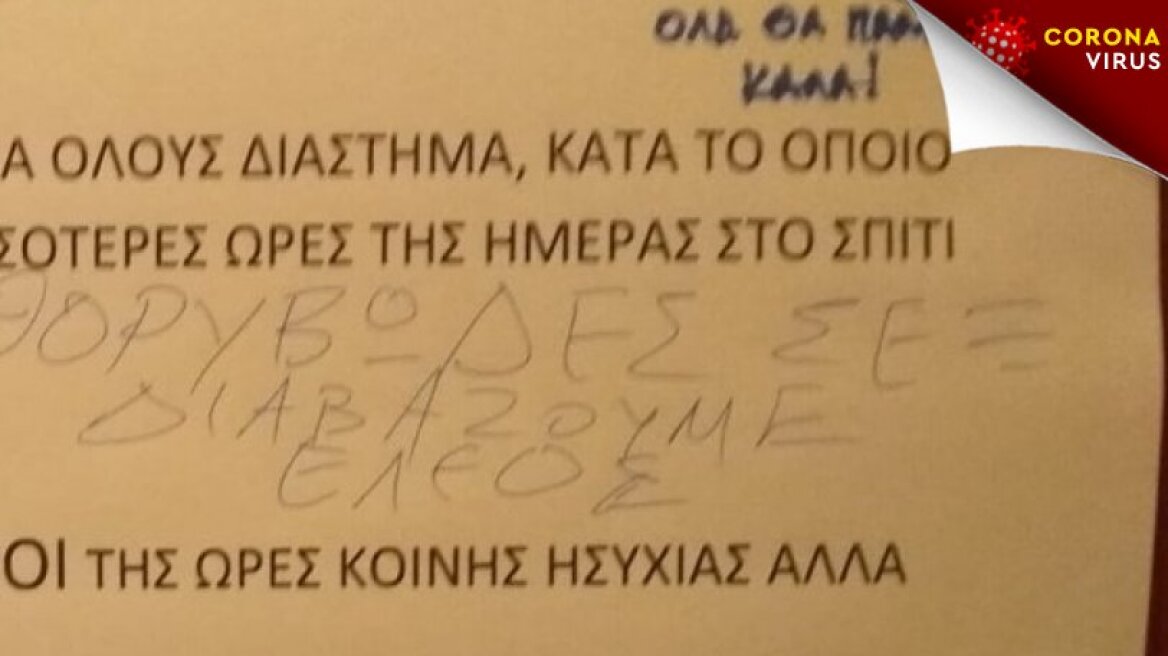 ΟΛΑ ΘΑ ΠΑΝ
ΚΑΛΑ!
CORONA
VIRUS
Α ΟΛΟΥΣ ΔΙΑΣΤΗΜΑ, ΚΑΤΑ ΤΟ ΟΠΟΙΟ
ΣΟΤΕΡΕΣ ΩΡΕΣ ΤΗΣ ΗΜΕΡΑΣ ΣΤΟ ΣΠΙΤΙ
ΘΟΡΥΒΩΔΕΣ ΣΕΞ
ΔΙΑΒΑΖΟΥΜΕ
ΕΛΕΟΣ
ΟΙ ΤΗΣ ΩΡΕΣ ΚΟΙΝΗΣ ΗΣΥΧΙΑΣ ΑΛΛΑ